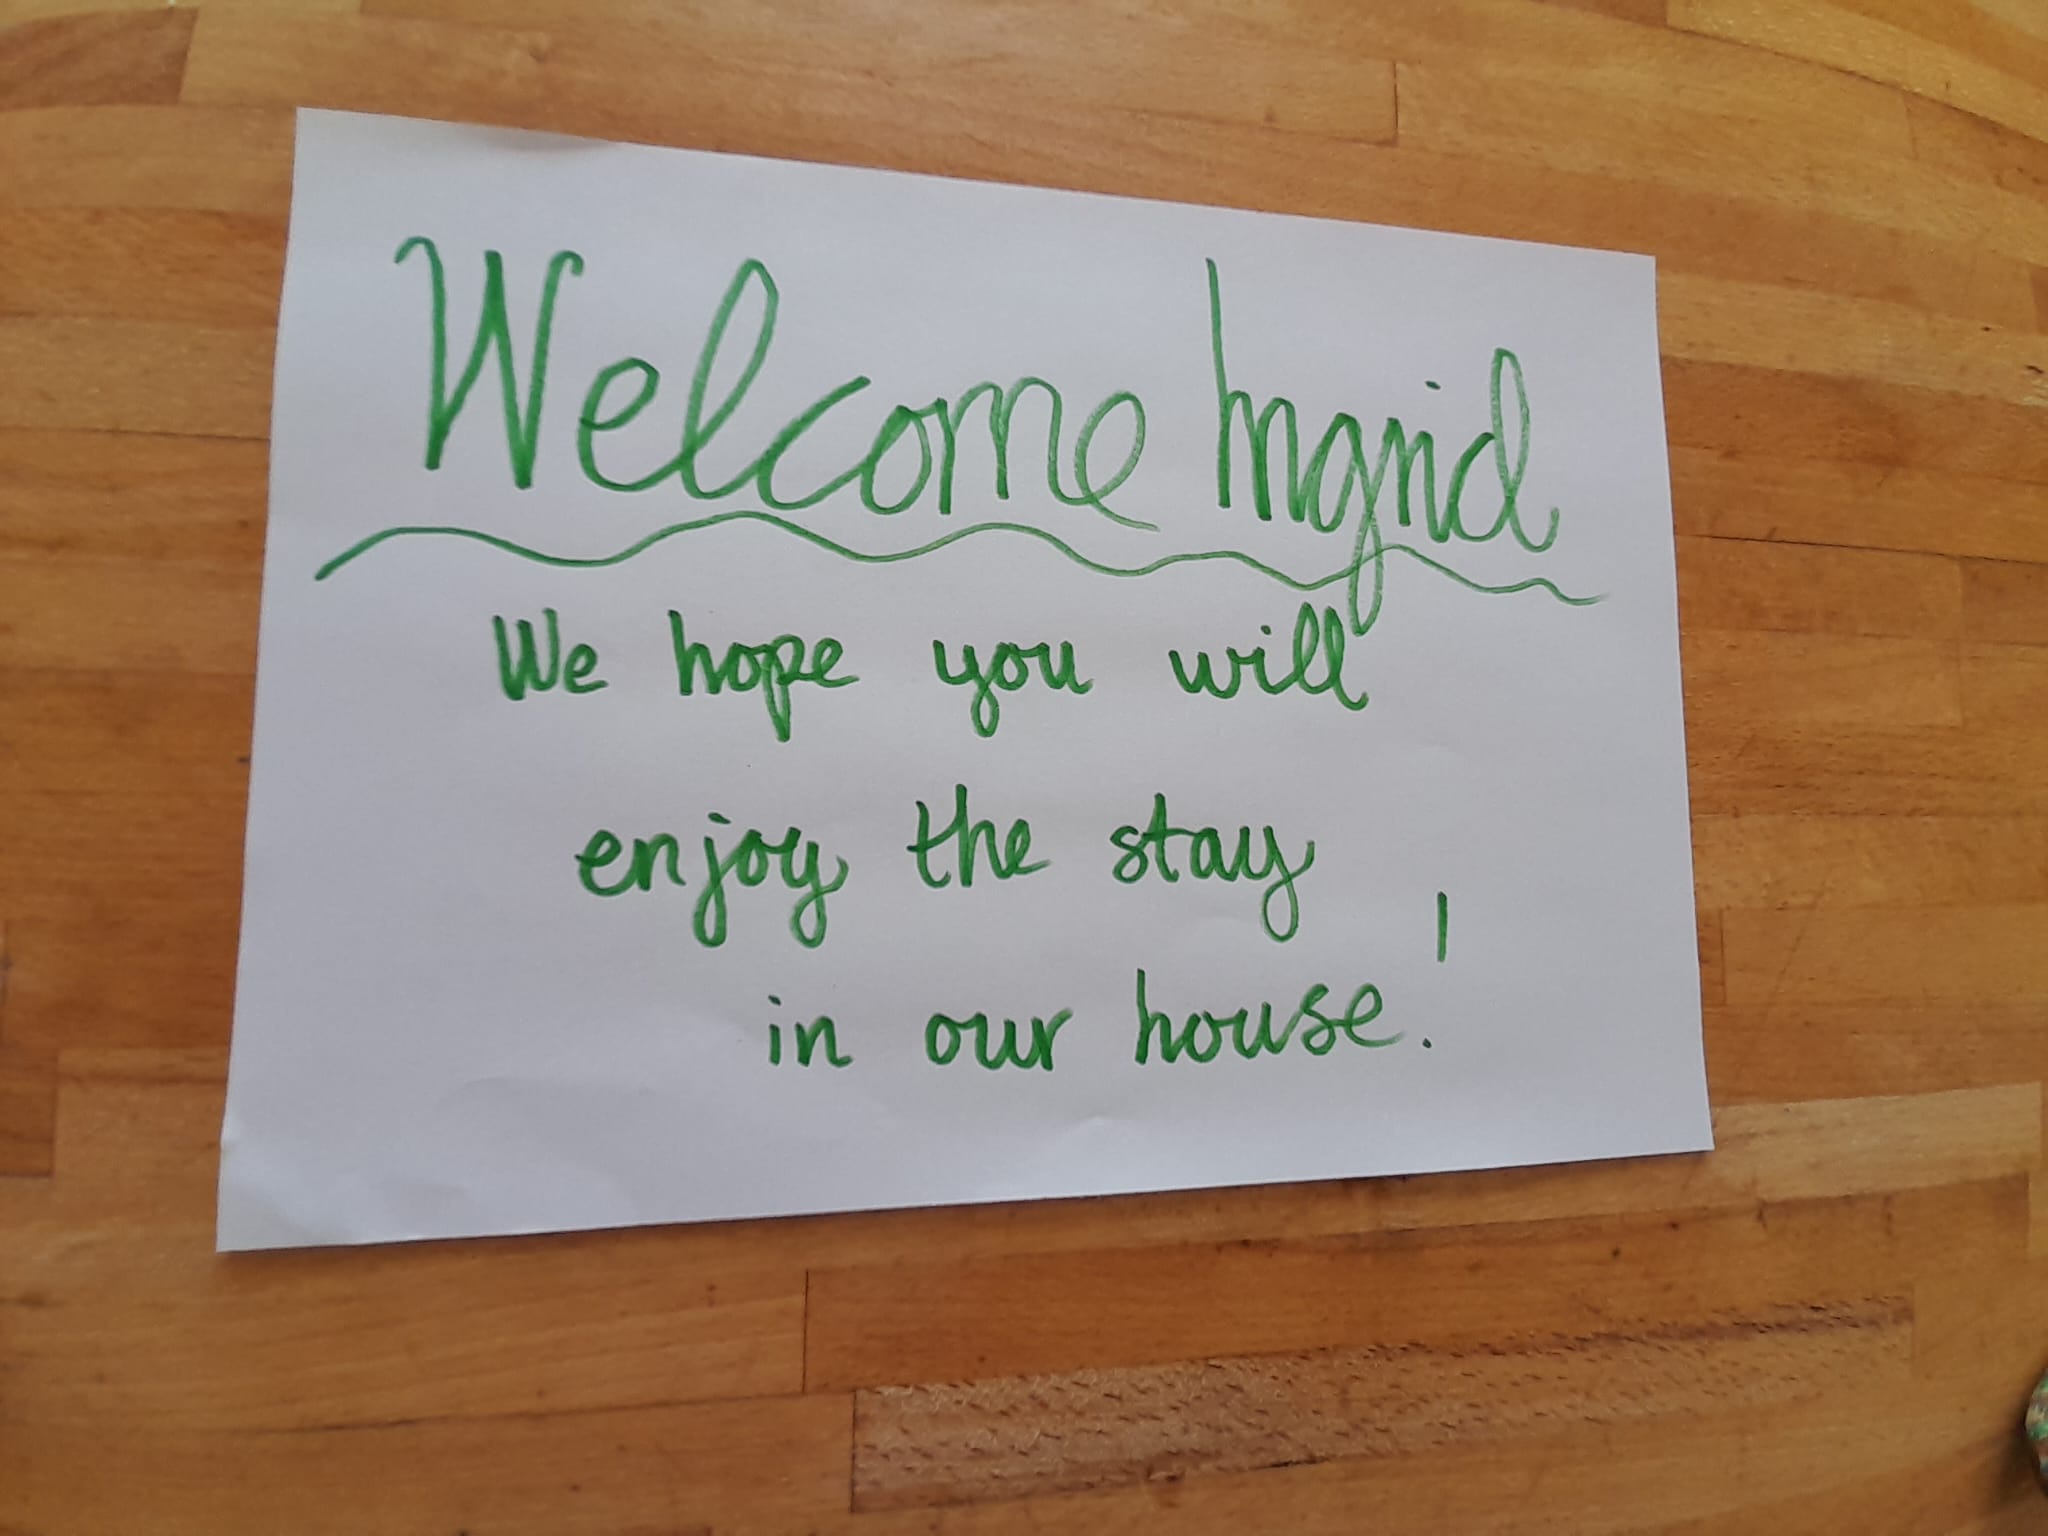 Welcome Ingrid
We hope you will
enjoy the stay
in our house!